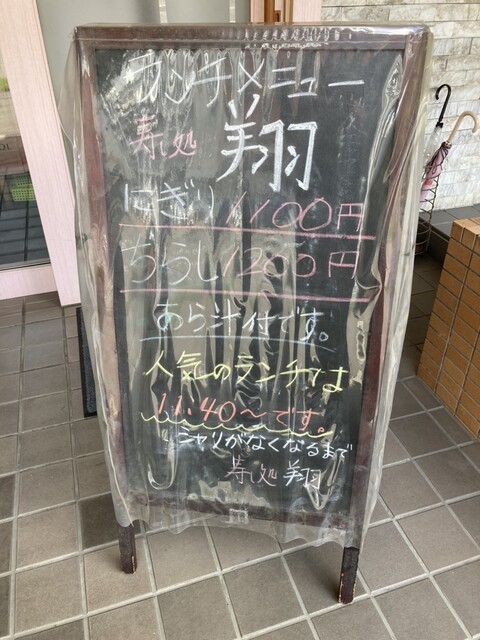 ランチメニュー
寿し処 翔
にぎり 1100円
ちらし 1200円
あら汁付です。
人気のランチは
11:40〜です。
シャリがなくなるまで
寿し処 翔